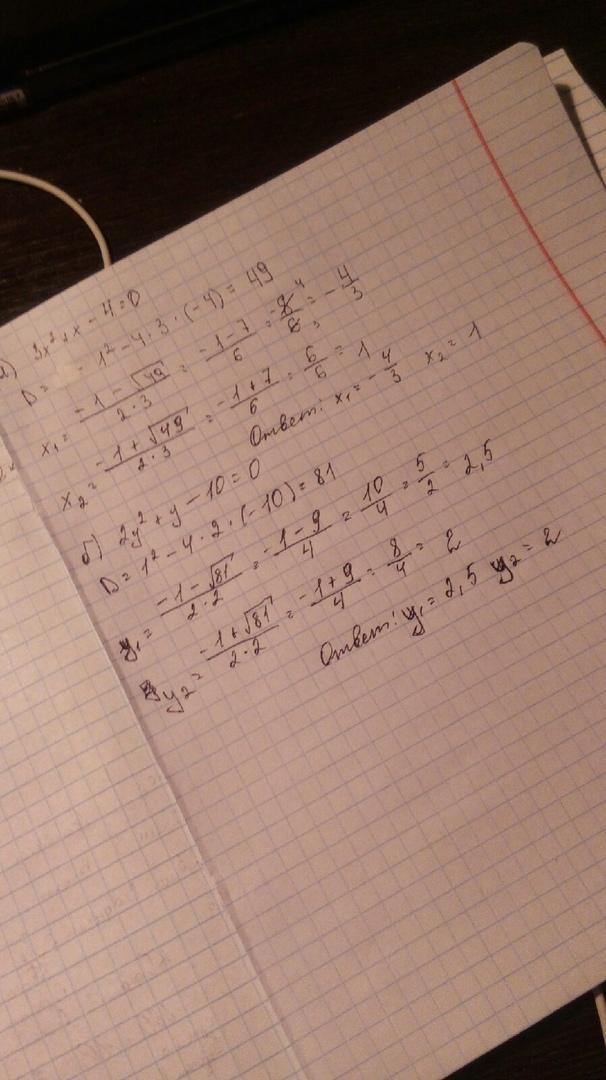 а) 3x² + x - 4 = 0
D = 1² - 4 · 3 · (-4) = 49
x₁ = (-1 - √49)/(2 · 3) = (-1 - 7)/6 = -8/6 = -4/3
x₂ = (-1 + √49)/(2 · 3) = (-1 + 7)/6 = 6/6 = 1
Ответ: x₁ = -4/3 x₂ = 1
б) 2y² + y - 10 = 0
D = 1² - 4 · 2 · (-10) = 81
y₁ = (-1 - √81)/(2 · 2) = (-1 - 9)/4 = 10/4 = 5/2 = 2,5
y₂ = (-1 + √81)/(2 · 2) = (-1 + 9)/4 = 8/4 = 2
Ответ: y₁ = 2,5 y₂ = 2